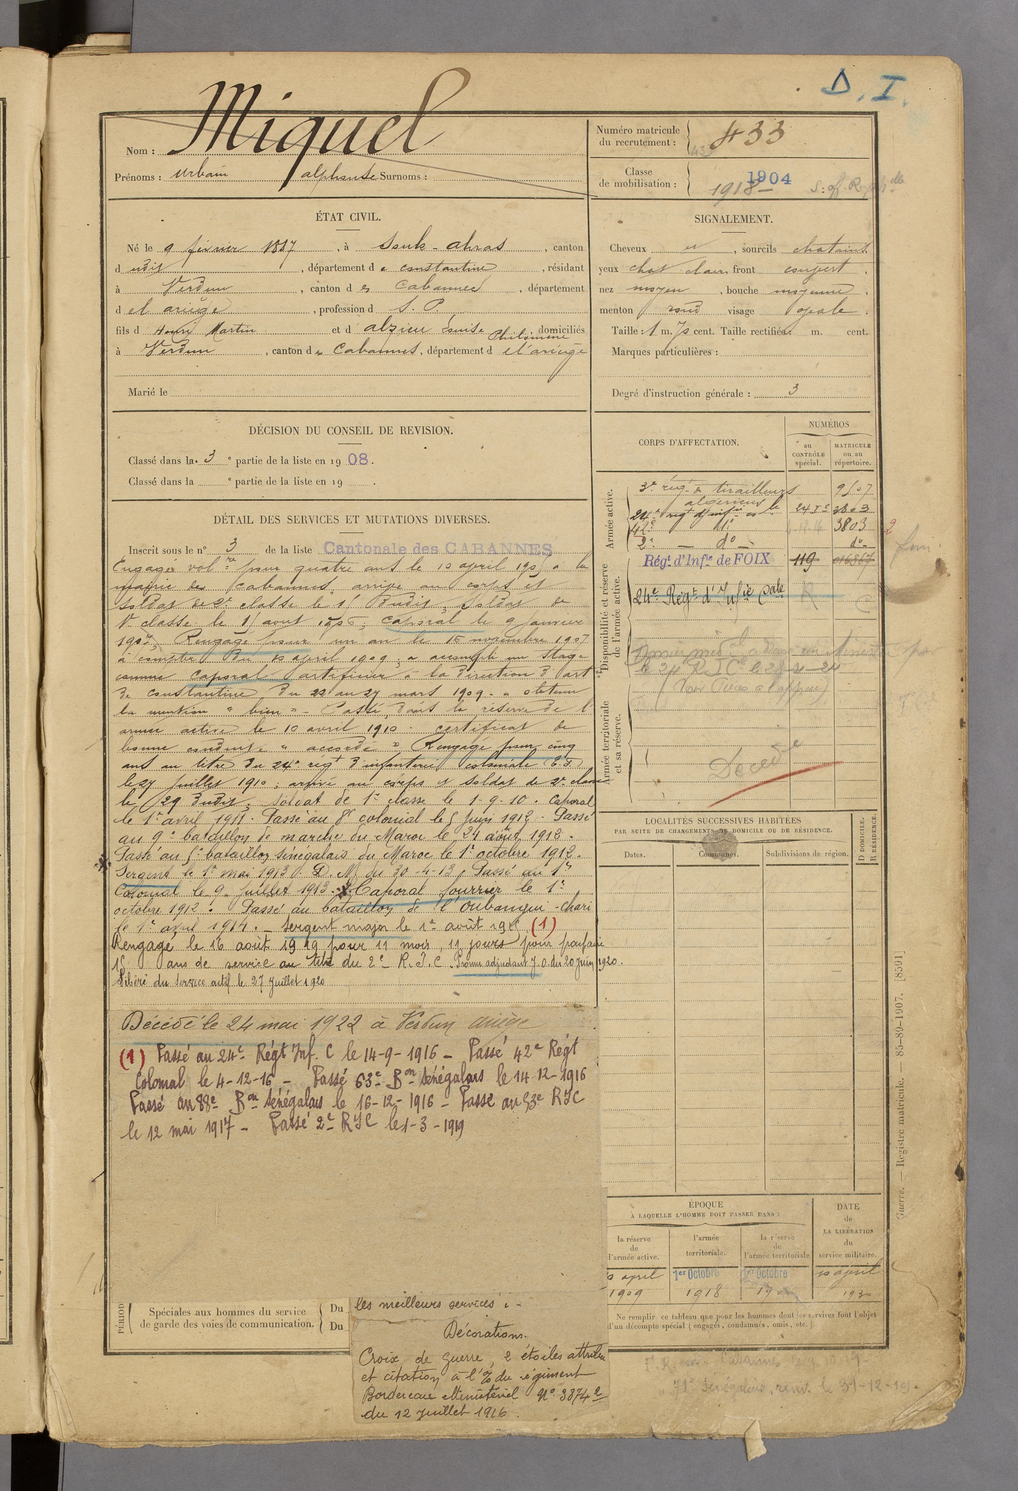 D. I.
Nom : Miquel
Prénoms : Urbain Alphonse Surnoms :
Numéro matricule du recrutement : 433
Classe de mobilisation : 1904
1918
ÉTAT CIVIL.
Né le 9 février 1887, à Souk-Ahras, canton
dudit, département de Constantine, résidant
à Verdun, canton des Cabannes, département
de l'ariège, profession d S. P.
fils d Henri Martin et d'alzieu Louise Philomène, domiciliés
à Verdun, canton des Cabannes, département de l'ariège
Marié le
SIGNALEMENT.
Cheveux et, sourcils chatains
yeux chat clair, front couvert,
nez moyen, bouche moyenne,
menton rond visage ovale.
Taille : 1 m. 75 cent. Taille rectifiée : m. cent.
Marques particulières :
Degré d'instruction générale : 3
DÉCISION DU CONSEIL DE REVISION.
Classé dans la 3e partie de la liste en 1908.
Classé dans la e partie de la liste en 19 .
CORPS D'AFFECTATION.
NUMÉROS
au CONTRÔLE spécial.
MATRICULE ou au répertoire.
Armée active.
3e rég. de tirailleurs algériens
24e régt d'infie cle
3803
42e do 3803
2e do do
Disponibilité et réserve de l'armée active.
Régt. d'Infie de FOIX 119
24e Régt d'Infie Cale
Armée territoriale et sa réserve.
Décédé
DÉTAIL DES SERVICES ET MUTATIONS DIVERSES.
Inscrit sous le n° 3 de la liste Cantonale des CABANNES
Engagé volre pour quatre ans le 10 avril 190 à la
mairie des Cabannes, arrivé au corps et
soldat de 2e classe le 1 dudit, soldat de
1e classe le 1 aout 190, caporal le 9 janvier
1907. Rengagé pour un an le 15 novembre 1907
à compter du 10 avril 1909, a accompli un stage
comme caporal artificier à la direction d'art
de Constantine, du 22 au 27 mars 1909 - a obtenu
la mention " bien " - Passé dans la réserve de l'
armée active le 10 avril 1910 - certificat de
bonne conduite " accordé " Rengagé pour cinq
ans au titre du 24e régt d'infanterie coloniale
le 27 juillet 1910, arrivé au corps et soldat de 2e classe
le 29 dudit, soldat de 1e classe le 1-9-10. Caporal
le 1er avril 1911. Passé au 8e colonial le 5 juin 1912. Passé
au 9e bataillon de marche du Maroc le 24 août 1912.
Passé au 5e bataillon sénégalais du Maroc le 1er octobre 1912.
Sergent le 1er mai 1913 D. M. du 30-4-13, Passé au 1er
Colonial le 9 juillet 1913. Caporal fourrier le 1er
octobre 1912. Passé au bataillon de l'Oubangui-Chari
le 1er avril 1914. - Sergent major le 1er août 191 (1)
Rengagé le 16 août 1919 pour 11 mois, 11 jours pour parfaire
15 ans de service au titre du 2e R.I.C. Promu adjudant J.O. du 20 juin 1920.
Libéré du service actif le 27 juillet 1920
Décédé le 24 mai 1922 à Verdun Ariège
(1) Passé au 24e Régt Inf. C le 14-9-1916 - Passé 42e Régt
Colonial le 4-12-16 - Passé 63e Bon Sénégalais le 14-12-1916
Passé au 88e Bon Sénégalais le 16-12-1916 - Passé au 53e RIC
le 12 mai 1917 - Passé 2e RIC le 1-3-1919
LOCALITÉS SUCCESSIVES HABITÉES
PAR SUITE DE CHANGEMENTS DE DOMICILE OU DE RÉSIDENCE.
Dates. Communes. Subdivisions de région. D DOMICILE. R RÉSIDENCE.
ÉPOQUE
À LAQUELLE L'HOMME DOIT PASSER DANS :
la réserve de l'armée active.
l'armée territoriale.
la réserve de l'armée territoriale
DATE de LA LIBÉRATION du service militaire.
10 avril 1909
1er Octobre 1918
1er Octobre
10 avril
Ne remplir ce tableau que pour les hommes dont les services font l'objet
d'un décompte spécial (engagés, condamnés, omis, etc.)
PÉRIOD
Spéciales aux hommes du service
de garde des voies de communication.
Du
Du
les meilleurs services.
Décorations.
Croix de guerre, 2 étoiles attribu
et citation à l'% du régiment
Bordereau Ministériel N° 3874
du 12 juillet 1916.
Guerre. — Registre matricule. — 85-89-1907. [8591]